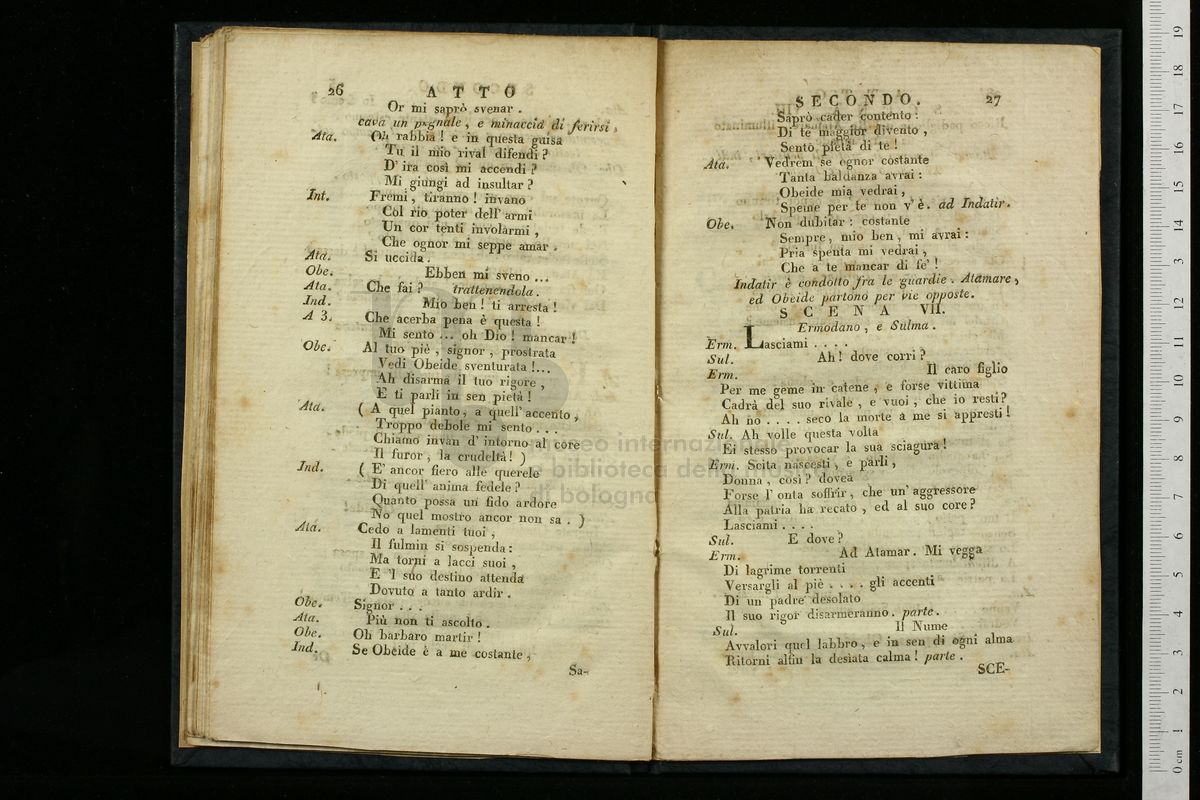 26 ATTO
Or mi saprò svenar .
cava un pugnale , e minaccia di ferirsi ,
Ata. Oh rabbia ! e in questa guisa
Tu il mio rival difendi ?
D' ira così mi accendi ?
Mi giungi ad insultar ?
Int. Fremi , tiranno ! invano
Col rio poter dell' armi
Un cor tenti involarmi ,
Che ognor mi seppe amar .
Ata. Si uccida .
Obe. Ebben mi sveno ...
Ata. Che fai ? trattenendola .
Ind. Mio ben ! ti arresta !
A 3. Che acerba pena è questa !
Mi sento ... oh Dio ! mancar !
Obe. Al tuo piè , signor , prostrata
Vedi Obeide sventurata !...
Ah disarma il tuo rigore ,
E ti parli in sen pietà !
Ata. ( A quel pianto , a quell' accento ,
Troppo debole mi sento . . .
Chiamo invan d' intorno al core
Il furor , la crudeltà ! )
Ind. ( E' ancor fiero alle querele
Di quell' anima fedele ?
Quanto possa un fido ardore
No quel mostro ancor non sa . )
Ata. Cedo a lamenti tuoi ,
Il fulmin si sospenda :
Ma torni a lacci suoi ,
E 'l suo destino attenda
Dovuto a tanto ardir .
Obe. Signor . . .
Ata. Più non ti ascolto .
Obe. Oh barbaro martir !
Ind. Se Obeide è a me costante ,
Sa-
SECONDO. 27
Saprò cader contento :
Di te maggior divento ,
Sento pietà di te !
Ata. Vedrem se ognor costante
Tanta baldanza avrai :
Obeide mia vedrai ,
Speme per te non v' è . ad Indatir.
Obe. Non dubitar : costante
Sempre , mio ben , mi avrai :
Pria spenta mi vedrai ,
Che a te mancar di fe' !
Indatir è condotto fra le guardie . Atamare ,
ed Obeide partono per vie opposte.
SCENA VII.
Ermodano , e Sulma .
Erm. Lasciami . . . .
Sul. Ah ! dove corri ?
Erm. Il caro figlio
Per me geme in catene , e forse vittima
Cadrà del suo rivale , e vuoi , che io resti ?
Ah no . . . . seco la morte a me si appresti !
Sul. Ah volle questa volta
Ei stesso provocar la sua sciagura !
Erm. Scita nascesti , e parli ,
Donna , così ? dovea
Forse l' onta soffrir , che un' aggressore
Alla patria ha recato , ed al suo core ?
Lasciami . . . .
Sul. E dove ?
Erm. Ad Atamar . Mi vegga
Di lagrime torrenti
Versargli al piè . . . . gli accenti
Di un padre desolato
Il suo rigor disarmeranno . parte .
Sul. Il Nume
Avvalori quel labbro , e in sen di ogni alma
Ritorni alfin la desiata calma ! parte .
SCE-